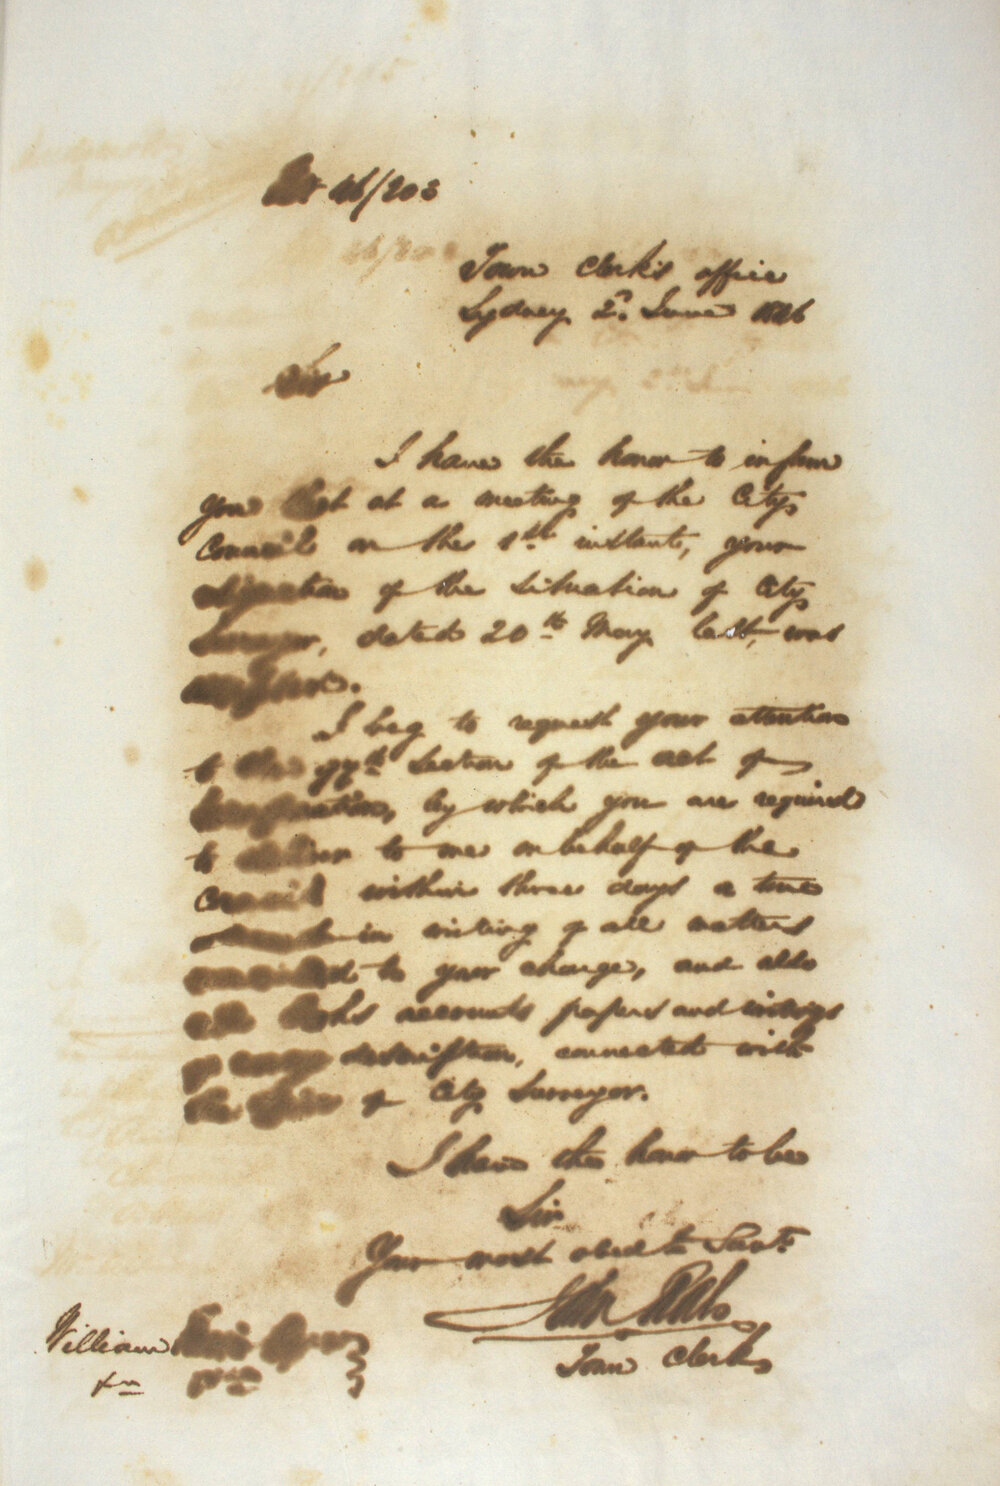 46/203
Town Clerk's office
Sydney 2d. June 1846
Sir
I have the honor to inform
you that at a meeting of the City
Council on the 1st instant, your
resignation of the situation of City
Surveyor, dated 20th May last, was
accepted.
I beg to request your attention
to the section of the act of
Incorporation, by which you are required
to deliver to me on behalf of the
Council within three days a true
in writing of all matters
committed to your charge, and also
all books accounts papers and writings
of every description, connected with
the office of City Surveyor.
I have the honor to be
Sir
Your most obedt Servt.
John
Town Clerk
William